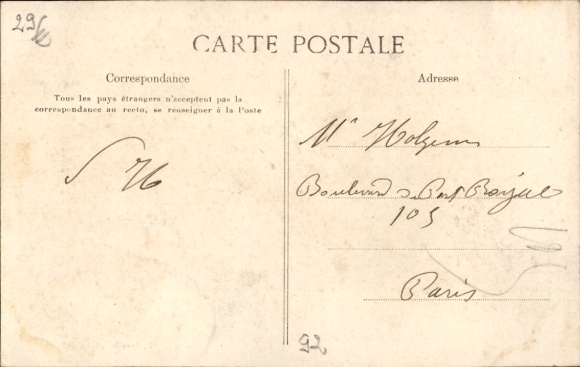 29
CARTE POSTALE
Correspondance
Tous les pays étrangers n'acceptent pas la
correspondance au recto, se renseigner à la Poste
Adresse
Mr
Boulevard du Port Royal
105
Paris
92